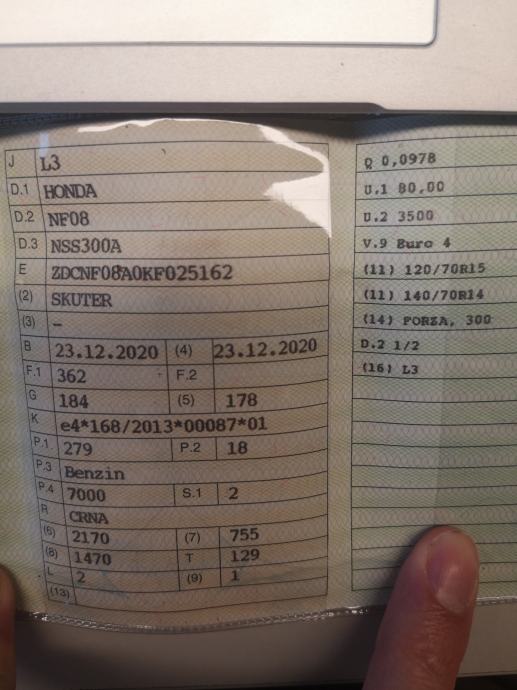 J L3
D.1 HONDA
D.2 NF08
D.3 NSS300A
E ZDCNF08A0KF025162
(2) SKUTER
(3) –
B 23.12.2020 (4) 23.12.2020
F.1 362 F.2
G 184 (5) 178
K e4*168/2013*00087*01
P.1 279 P.2 18
P.3 Benzin
P.4 7000 S.1 2
R CRNA
(6) 2170 (7) 755
(8) 1470 T 129
L 2 (9) 1
(13)
Q 0,0978
U.1 80,00
U.2 3500
V.9 Euro 4
(11) 120/70R15
(11) 140/70R14
(14) FORZA, 300
D.2 1/2
(16) L3